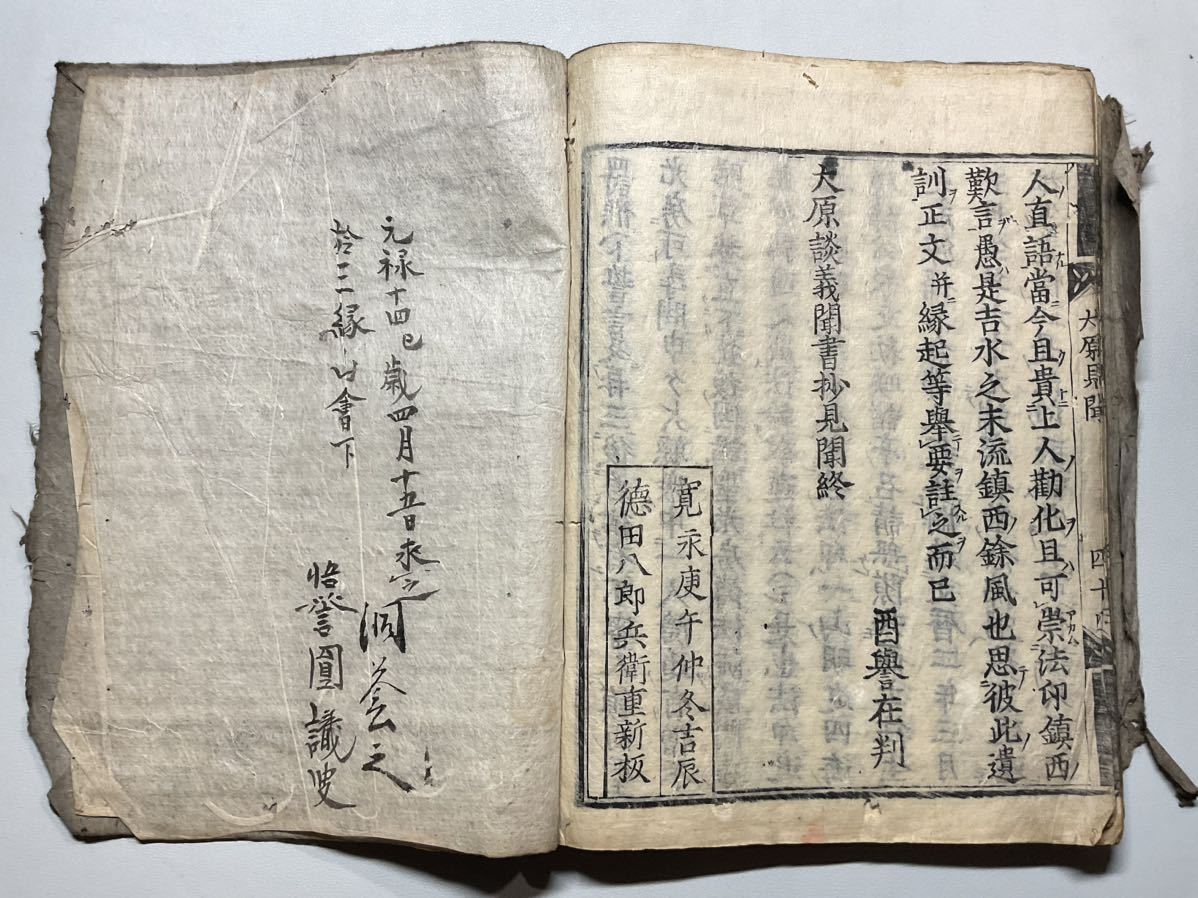 人直語當今且貴上人勸化且可崇法印鎮西
歎言愚是吉水之末流鎮西餘風也思彼此遺
訓正文并緣起等舉要註之而已
酉譽在判
大原談義聞書抄見聞終
寛永庚午仲冬吉辰
德田八郎兵衛重新板
大原見聞
四十
元禄十四巳歳四月十五日求之
拾二縁山會下
譽圓